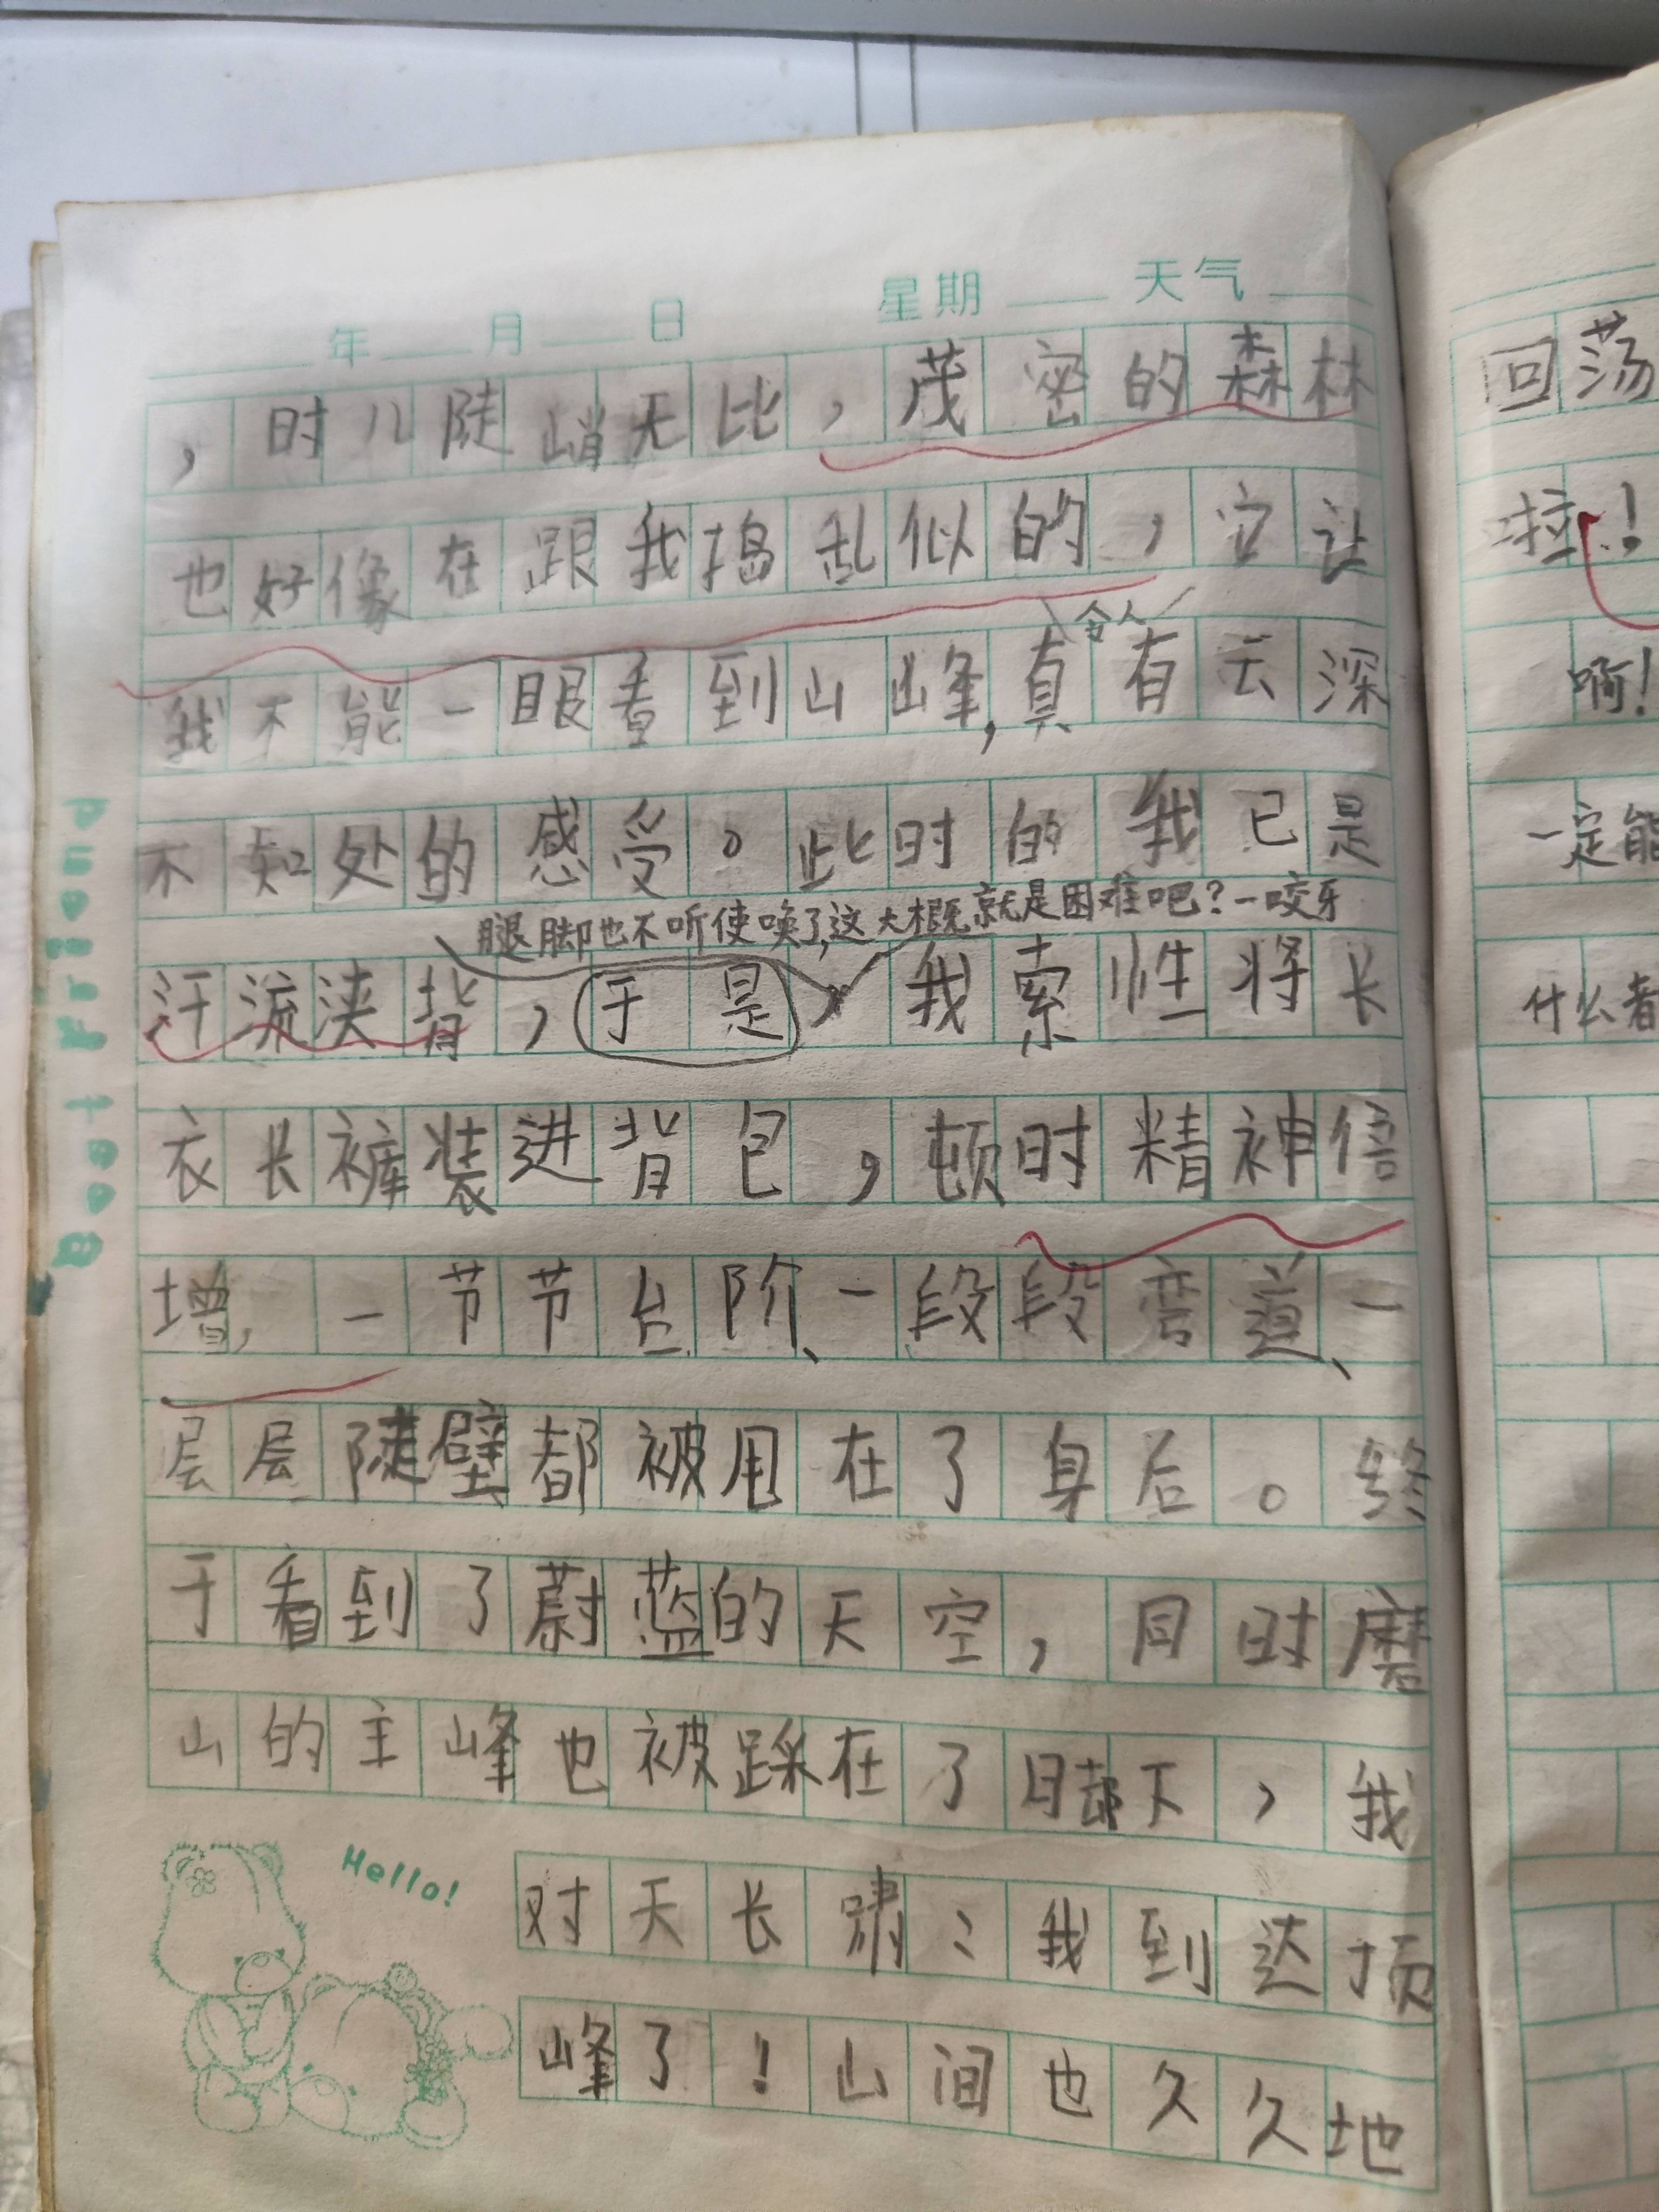 年 月 日 星期 天气
，时儿陡峭无比，茂密的森林
也好像在跟我捣乱似的，它让
令人
我不能一眼看到山峰，真有云深
不知处的感受。此时的我已是
腿脚也不听使唤了，这大概就是困难吧？一咬牙
汗流浃背，于是，我索性将长
衣长裤装进背包，顿时精神倍
增，一节节台阶、一段段弯道、一
层层陡壁都被甩在了身后。终
于看到了蔚蓝的天空，同时磨
山的主峰也被踩在了脚下，我
Hello!
对天长啸：我到达顶
峰了！山间也久久地
Good friend
回荡
啦！
啊！
一定能
什么者